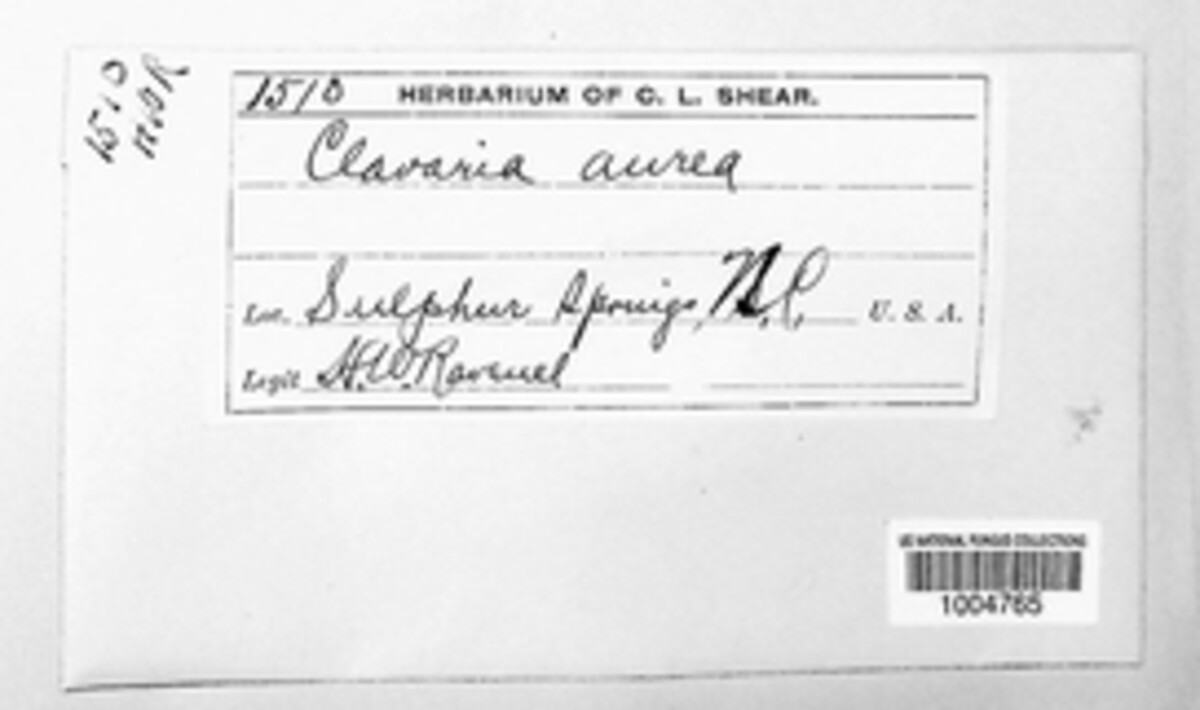 1510
1510 HERBARIUM OF C. L. SHEAR.
Clavaria aurea
Loc. Sulphur Springs, N.C. U. S. A.
Legit H.W. Ravenel
US NATIONAL FUNGUS COLLECTIONS
1004765